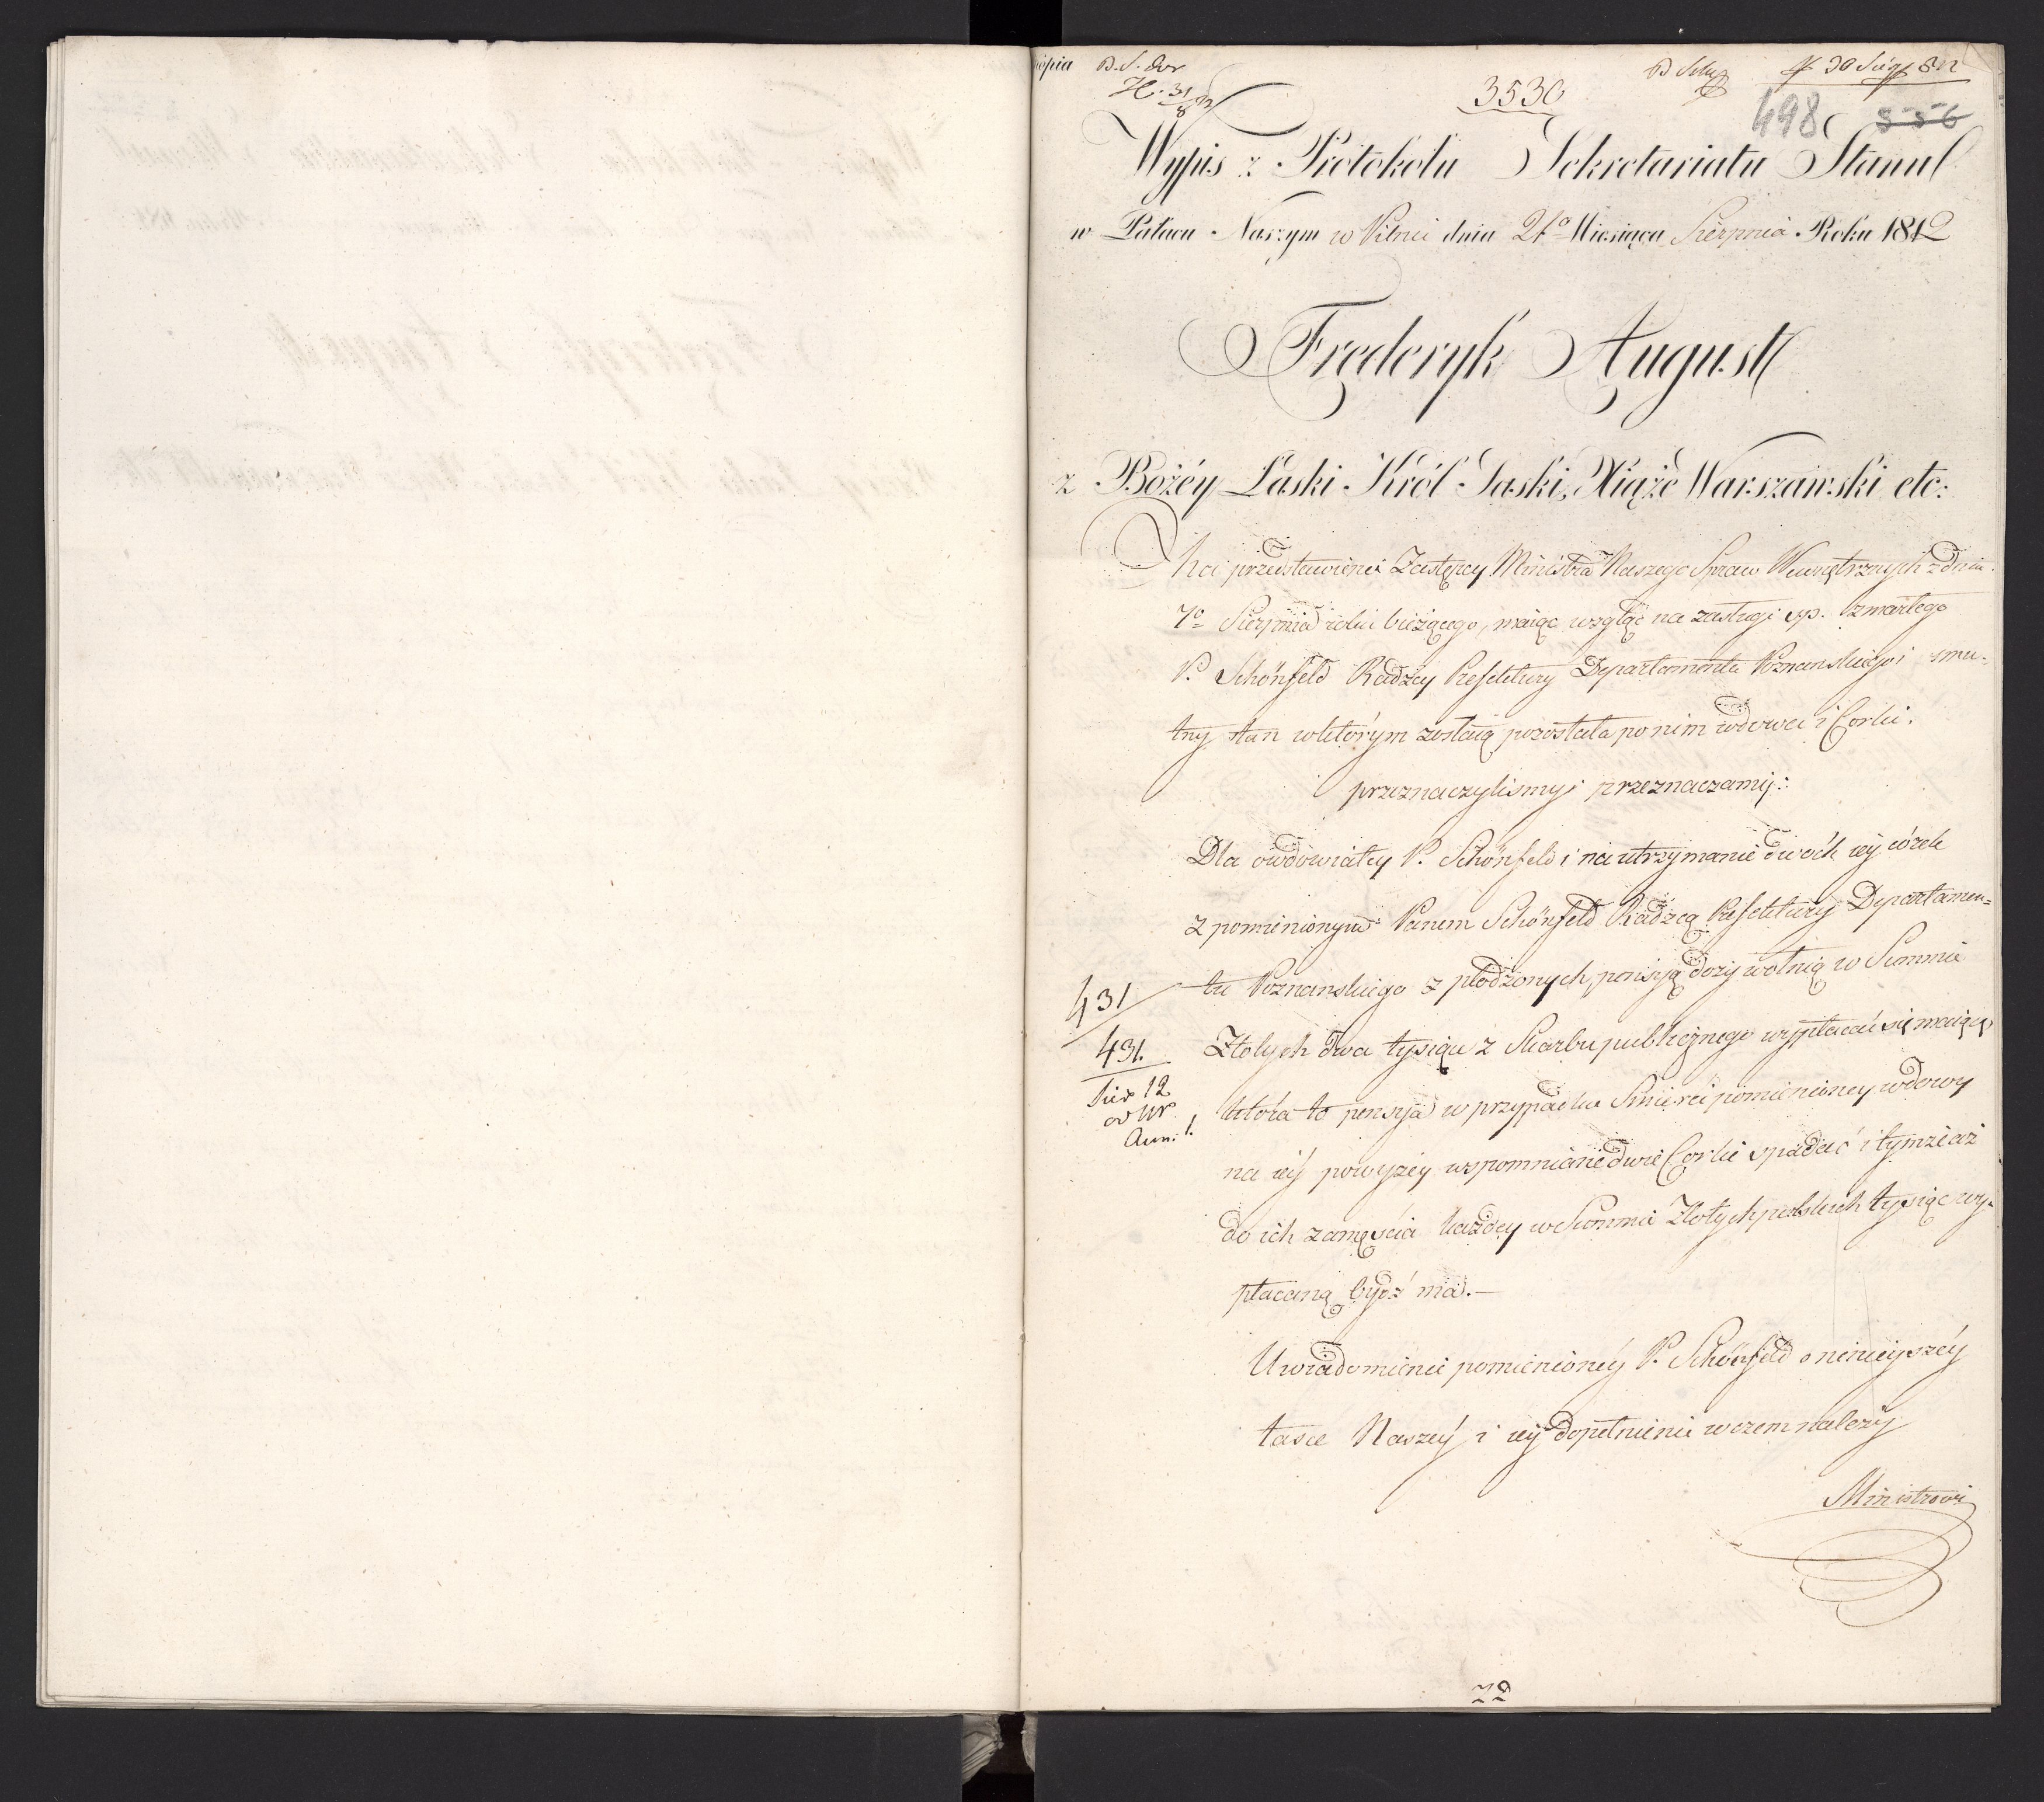 3530
498 556
Wypis z Protokołu Sekretariatu Stanu
w Pałacu Naszym w Pilnci dnia 21o Miesiąca Sierpnia Roku 1812
Frederyk August
z Bożéy Łaski Król Saski, Xiążę Warszawski etc:
Na przedstawienie Zastępcy Ministra Naszego Spraw Wewnętrznych z dnia
7o Sierpnia roku bieżącego, maiąc wzgląd na zasługi ś.p. zmarłego
P. Schönfeld Radzcy Prefektury Departamentu Poznanskiego i smu-
tny stan w którym zostaią pozostała po nim wdowa i Corki.
przeznaczyliśmy i przeznaczamy:
Dla owdowiałey P. Schönfeld i na utrzymanie dwóch iey córek
z pomienionym Panem Schönfeld Radzcą Prefektury Departamen=
tu Poznanskiego spłodzonych, pensyą dożywotnią w Summie
Złotych dwa tysiące z Skarbu publicznego wypłacać się maiącą
która to pensya w przypadku Śmierci pomienioney wdowy
na iéy powyżéy wspomniane dwie Corki spadać i tymże aż
do ich zamęścia każdey w Summie Złotych polskich tysiąc wy-
płacaną bydź ma.—
Uwiadomienie pomienionéy P. Schönfeld o ninieyszéy
łasce Naszéy i iéy dopełnienie w czem należy
Ministrowi
431
431.